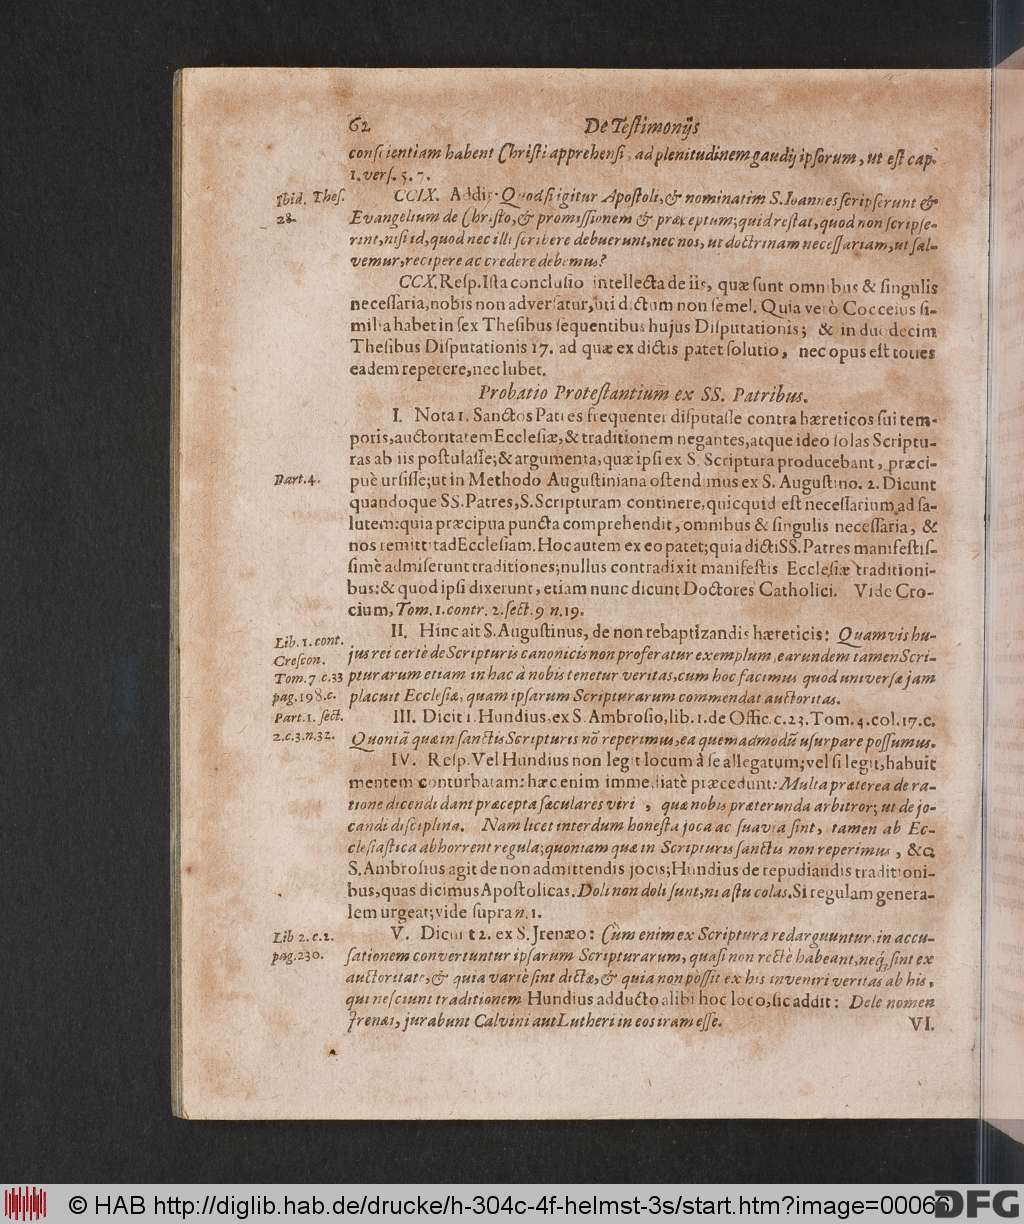 62 De Teſtimonijs
conſcientiam habent Chriſti apprehenſi, ad plenitudinem gaudij ipſorum, ut eſt cap.
1. verſ. 5. 7.
Ibid. Theſ.
28.
CCIX. Addit: Quod ſi igitur Apoſtoli, & nominatim S. Ioannes ſcripſerunt &
Evangelium de Chriſto, & promiſſionem & præceptum; quid reſtat, quod non ſcripſe-
rint, niſi id, quod nec illi ſcribere debuerunt, nec nos, ut doctrinam neceſſariam, ut ſal-
vemur, recipere ac credere debemus?
CCX. Reſp. Iſta concluſio intellecta de iis, quæ ſunt omnibus & ſingulis
neceſſaria, nobis non adverſatur, uti dictum non ſemel. Quia verò Cocceius ſi-
milia habet in ſex Theſibus ſequentibus hujus Diſputationis; & in duodecim
Theſibus Diſputationis 17. ad quæ ex dictis patet ſolutio, nec opus eſt toties
eadem repetere, nec lubet.
Probatio Proteſtantium ex SS. Patribus.
I. Nota 1. Sanctos Patres frequenter diſputaſſe contra hæreticos ſui tem-
poris, auctoritatem Eccleſiæ, & traditionem negantes, atque ideo ſolas Scriptu-
ras ab iis poſtulaſſe; & argumenta, quæ ipſi ex S. Scriptura producebant, præci-
Part. 4.
puè urſiſſe; ut in Methodo Auguſtiniana oſtendimus ex S. Auguſtino. 2. Dicunt
quandoque SS. Patres, S. Scripturam continere, quicquid eſt neceſſarium ad ſa-
lutem: quia præcipua puncta comprehendit, omnibus & ſingulis neceſſaria, &
nos remittit ad Eccleſiam. Hoc autem ex eo patet; quia dicti SS. Patres manifeſtiſ-
ſimè admiſerunt traditiones; nullus contradixit manifeſtis Eccleſiæ traditioni-
bus: & quod ipſi dixerunt, etiam nunc dicunt Doctores Catholici. Vide Cro-
cium, Tom. 1. contr. 2. ſect. 9 n. 19.
Lib. 1. cont.
Creſcon.
Tom. 7 c. 33
pag. 198. c.
II. Hinc ait S. Auguſtinus, de non rebaptizandis hæreticis: Quamvis hu-
jus rei certè de Scripturis canonicis non proferatur exemplum, earundem tamen Scri-
pturarum etiam in hac à nobis tenetur veritas, cum hoc facimus quod universæ jam
placuit Eccleſiæ, quam ipſarum Scripturarum commendat auctoritas.
Part. 1. ſect.
2. c. 3. n. 32.
III. Dicit 1. Hundius, ex S. Ambroſio, lib. 1. de Offic. c. 23. Tom. 4. col. 17. c.
Quoniã quæ in ſanctis Scripturis nõ reperimus, ea quemadmodũ uſurpare poſſumus.
IV. Reſp. Vel Hundius non legit locum à ſe allegatum; vel ſi legit, habuit
mentem conturbatam: hæc enim immediatè præcedunt: Multa præterea de ra-
tione dicendi dant præcepta ſæculares viri, quæ nobis præterunda arbitror; ut de jo-
candi diſciplina. Nam licet interdum honeſta joca ac ſuavia ſint, tamen ab Ec-
cleſiaſtica abhorrent regula; quoniam quæ in Scripturis ſanctis non reperimus, &c.
S. Ambroſius agit de non admittendis jocis; Hundius de repudiandis traditioni-
bus, quas dicimus Apoſtolicas. Doli non doli ſunt, ni aſtu colas. Si regulam genera-
lem urgeat; vide ſupra n. 1.
Lib 2. c. 2.
pag. 230.
V. Dicunt 2. ex S. Jrenæo: Cùm enim ex Scriptura redarguuntur, in accu-
ſationem convertuntur ipſarum Scripturarum, quaſi non rectè habeant, neq́; ſint ex
auctoritate, & quia variè ſint dictæ, & quia non poſſit ex his inveniri veritas ab his,
qui neſciunt traditionem Hundius adducto alibi hoc loco, ſic addit: Dele nomen
Jrenæi, jurabunt Calvini aut Lutheri in eos iram eſſe.
VI.
© HAB http://diglib.hab.de/drucke/h-304c-4f-helmst-3s/start.htm?image=00066
DFG